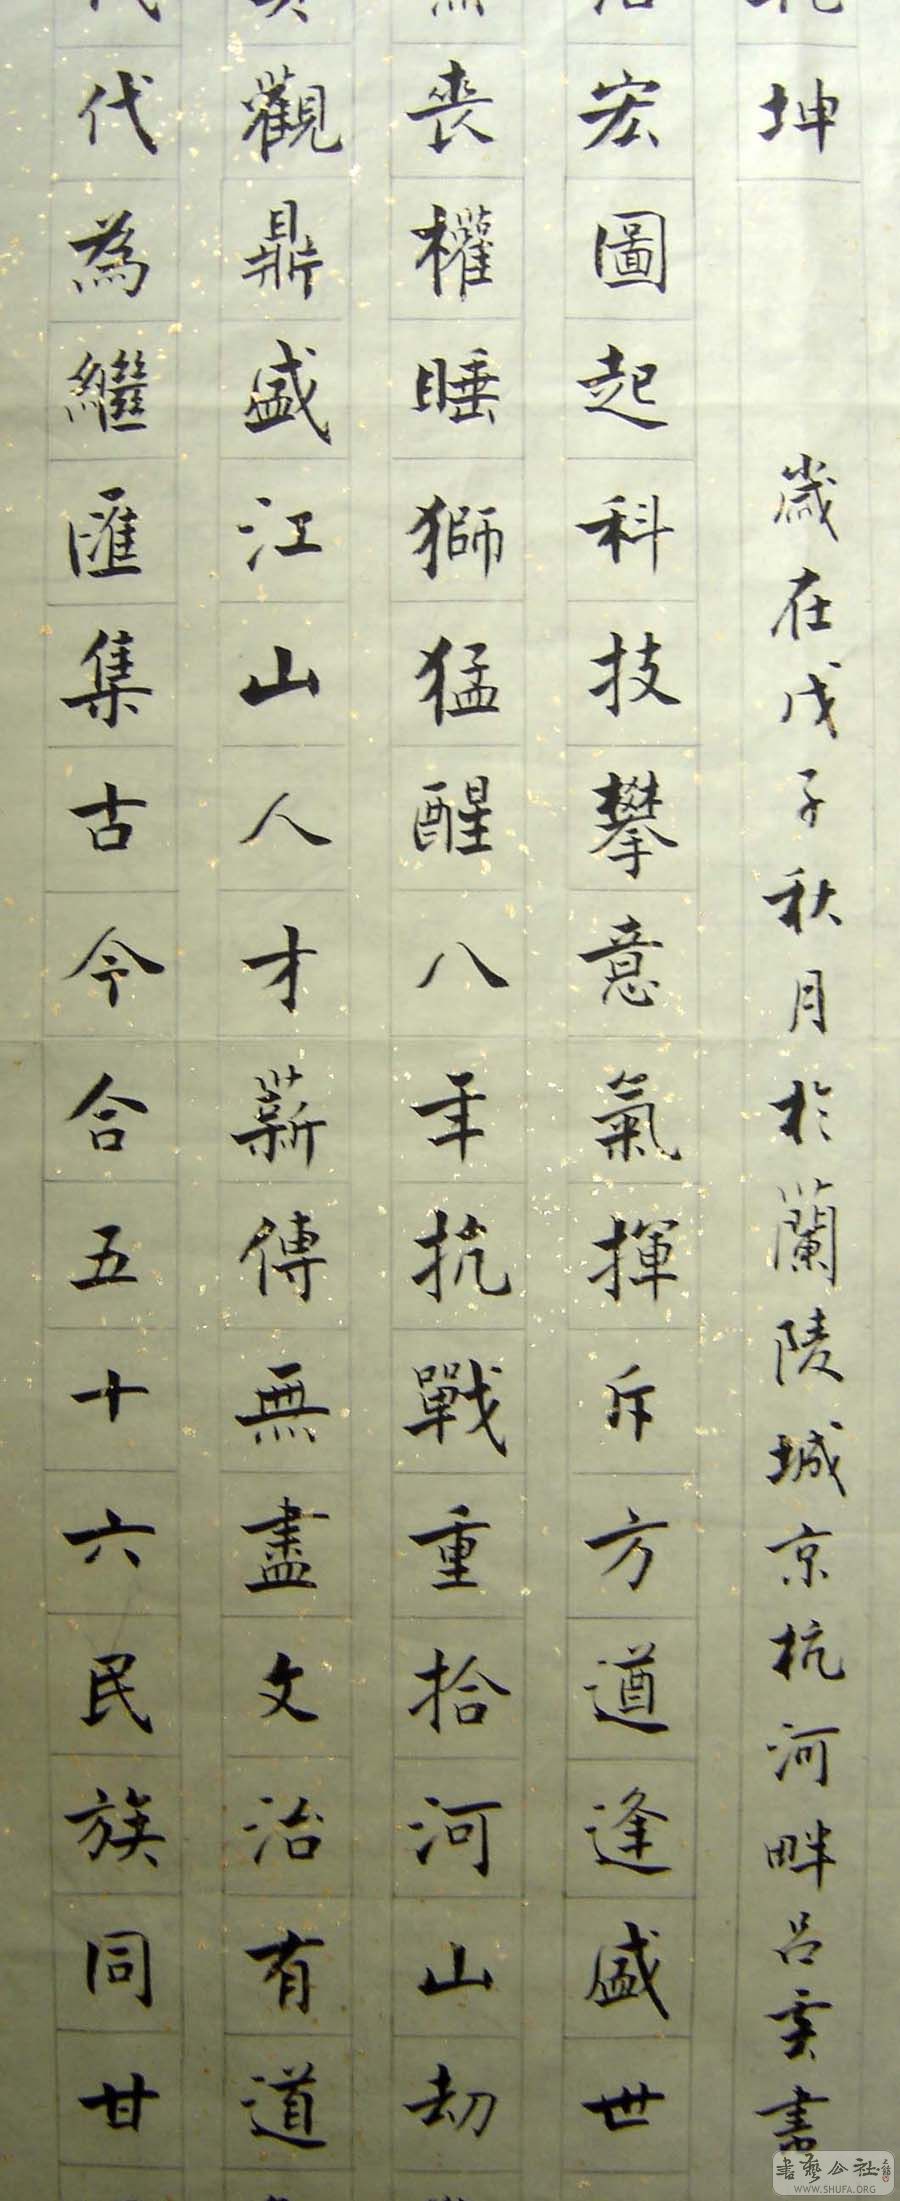 代為繼匯集古今合五十六民族同甘
觀鼎盛江山人才薪傳無盡文治有道
喪權睡獅猛醒八年抗戰重拾河山劫
宏圖起科技攀意氣揮斥方遒逢盛世
坤
歲在戊子秋月於蘭陵城京杭河畔呂雲書
書藝公社
WWW.SHUFA.ORG